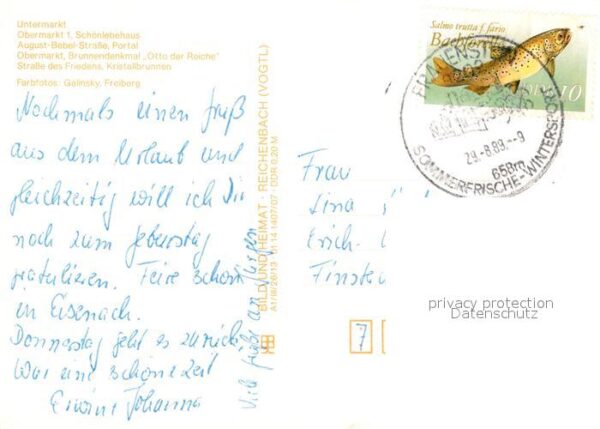 Untermarkt
Obermarkt 1, Schönlebehaus
August-Bebel-Straße, Portal
Obermarkt, Brunnendenkmal „Otto der Reiche"
Straße des Friedens, Kristallbrunnen
Farbfotos: Galinsky, Freiberg
Nochmals einen Gruß
aus dem Urlaub und
gleichzeitig will ich Dir
noch zum Geburtstag
gratulieren. Feire schön
in Eisenach.
Donnerstag geht es zurück,
War eine schöne Zeit
Johanna
Viele Grüße an Jürgen
BILD UND HEIMAT · REICHENBACH (VOGTL)
A1/III/26/13 01 14 1407/07 DDR 0,20 M
Salmo trutta f. fario
Bachforelle
DDR 10
29.-8.89.--9
658m
SOMMERFRISCHE-WINTERSPORT
Frau
Lina
Erich-
Finster
7
privacy protection
Datenschutz